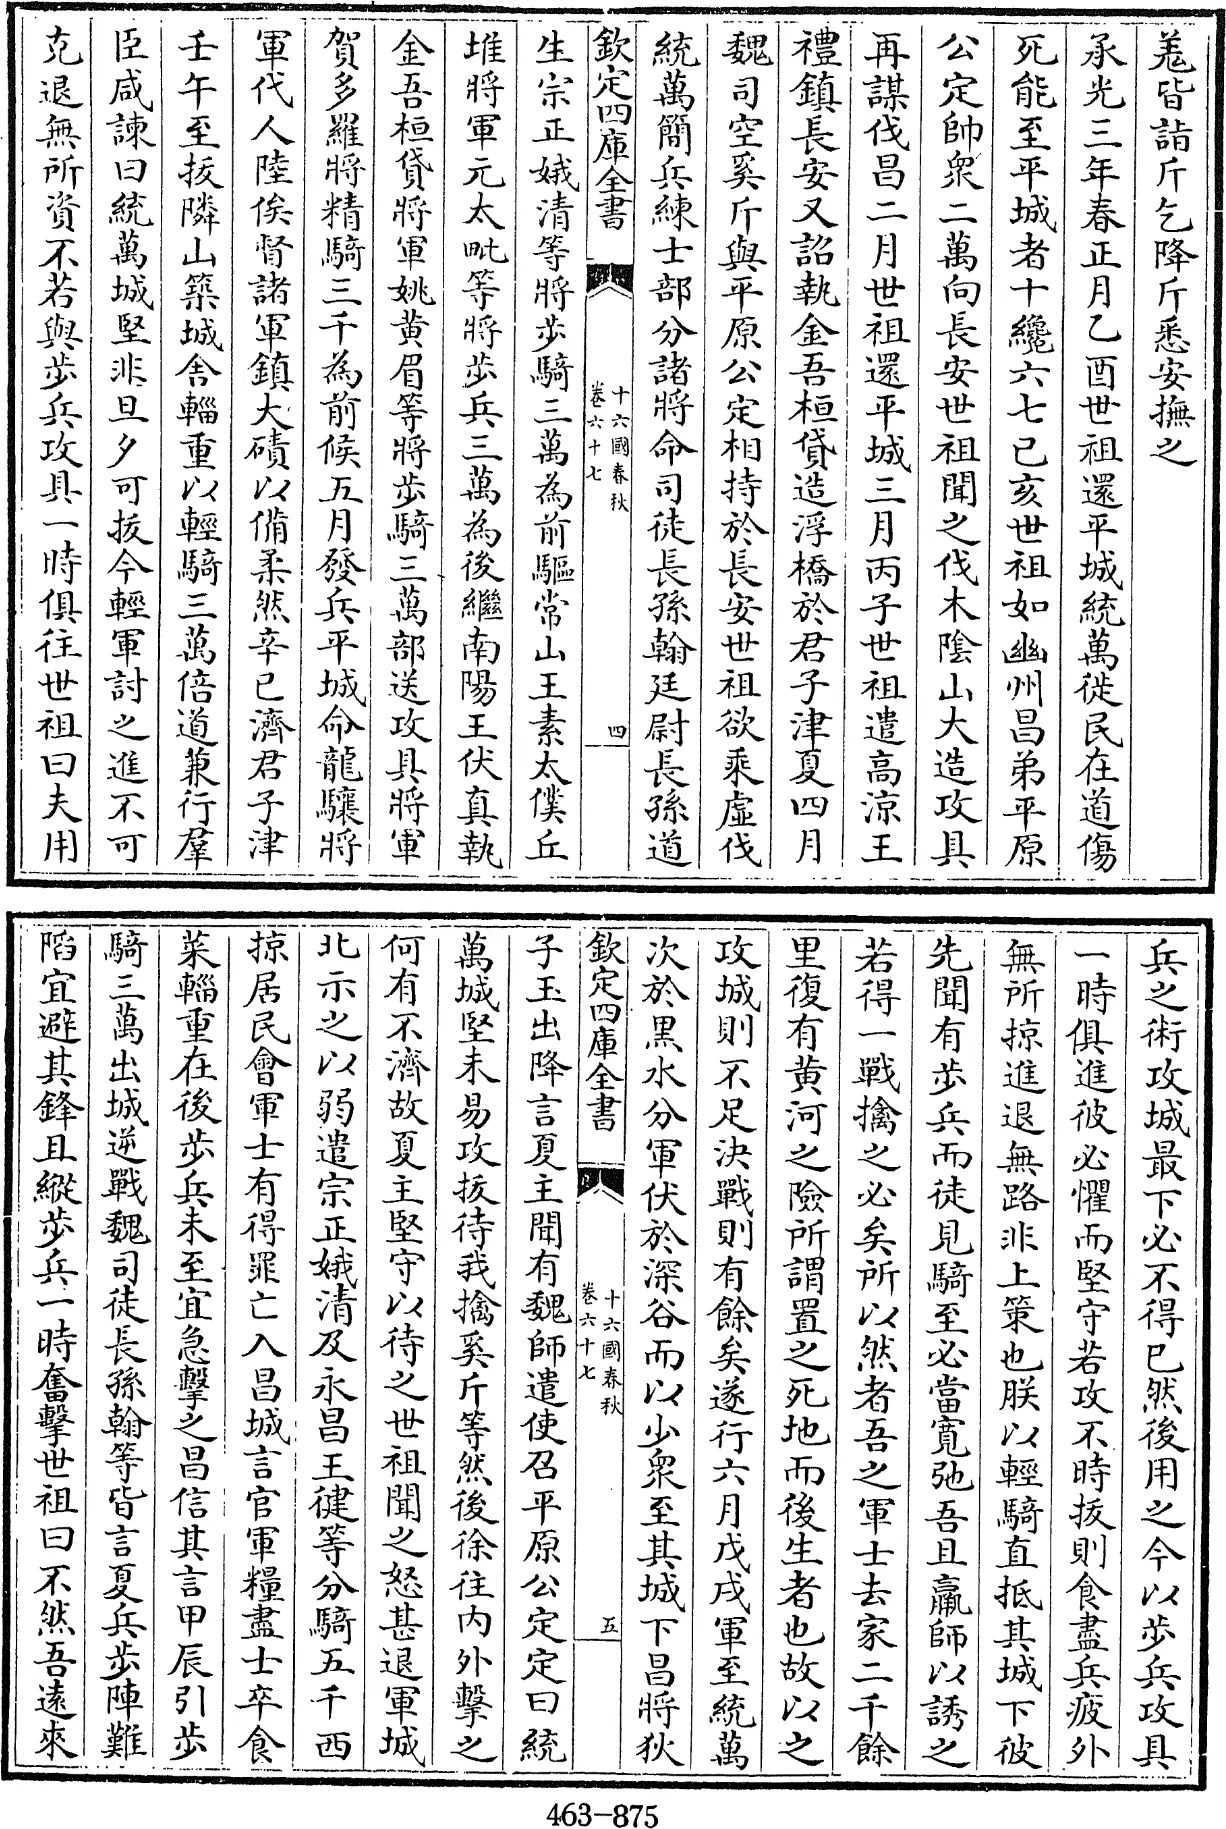 羌皆詣斤乞降斤悉安撫之
承光三年春正月乙酉世祖還平城統萬徙民在道傷
死能至平城者十纔六七己亥世祖如幽州昌弟平原
公定帥衆二萬向長安世祖聞之伐木陰山大造攻具
再謀伐昌二月世祖還平城三月丙子世祖遣高涼王
禮鎮長安又詔執金吾桓貸造浮橋於君子津夏四月
魏司空奚斤與平原公定相持於長安世祖欲乘虛伐
統萬簡兵練士部分諸將命司徒長孫翰廷尉長孫道
欽定四庫全書
十六國春秋
卷六十七
四
生宗正娥清等將步騎三萬為前驅常山王素太僕丘
堆將軍元太毗等將步兵三萬為後繼南陽王伏真執
金吾桓貸將軍姚黃眉等將步騎三萬部送攻具將軍
賀多羅將精騎三千為前候五月發兵平城命龍驤將
軍代人陸俟督諸軍鎮大磧以備柔然辛巳濟君子津
壬午至拔隣山築城舍輜重以輕騎三萬倍道兼行羣
臣咸諫曰統萬城堅非旦夕可拔今輕軍討之進不可
克退無所資不若與步兵攻具一時俱往世祖曰夫用
兵之術攻城最下必不得已然後用之今以步兵攻具
一時俱進彼必懼而堅守若攻不時拔則食盡兵疲外
無所掠進退無路非上策也朕以輕騎直抵其城下彼
先聞有步兵而徒見騎至必當寬弛吾且羸師以誘之
若得一戰擒之必矣所以然者吾之軍士去家二千餘
里復有黃河之險所謂置之死地而後生者也故以之
攻城則不足決戰則有餘矣遂行六月戊戌軍至統萬
次於黑水分軍伏於深谷而以少衆至其城下昌將狄
欽定四庫全書
十六國春秋
卷六十七
五
子玉出降言夏主聞有魏師遣使召平原公定定曰統
萬城堅未易攻拔待我擒奚斤等然後徐往內外擊之
何有不濟故夏主堅守以待之世祖聞之怒甚退軍城
北示之以弱遣宗正娥清及永昌王健等分騎五千西
掠居民會軍士有得罪亡入昌城言官軍糧盡士卒食
菜輜重在後步兵未至宜急擊之昌信其言甲辰引步
騎三萬出城逆戰魏司徒長孫翰等皆言夏兵步陣難
陷宜避其鋒且縱步兵一時奮擊世祖曰不然吾遠來
463-875